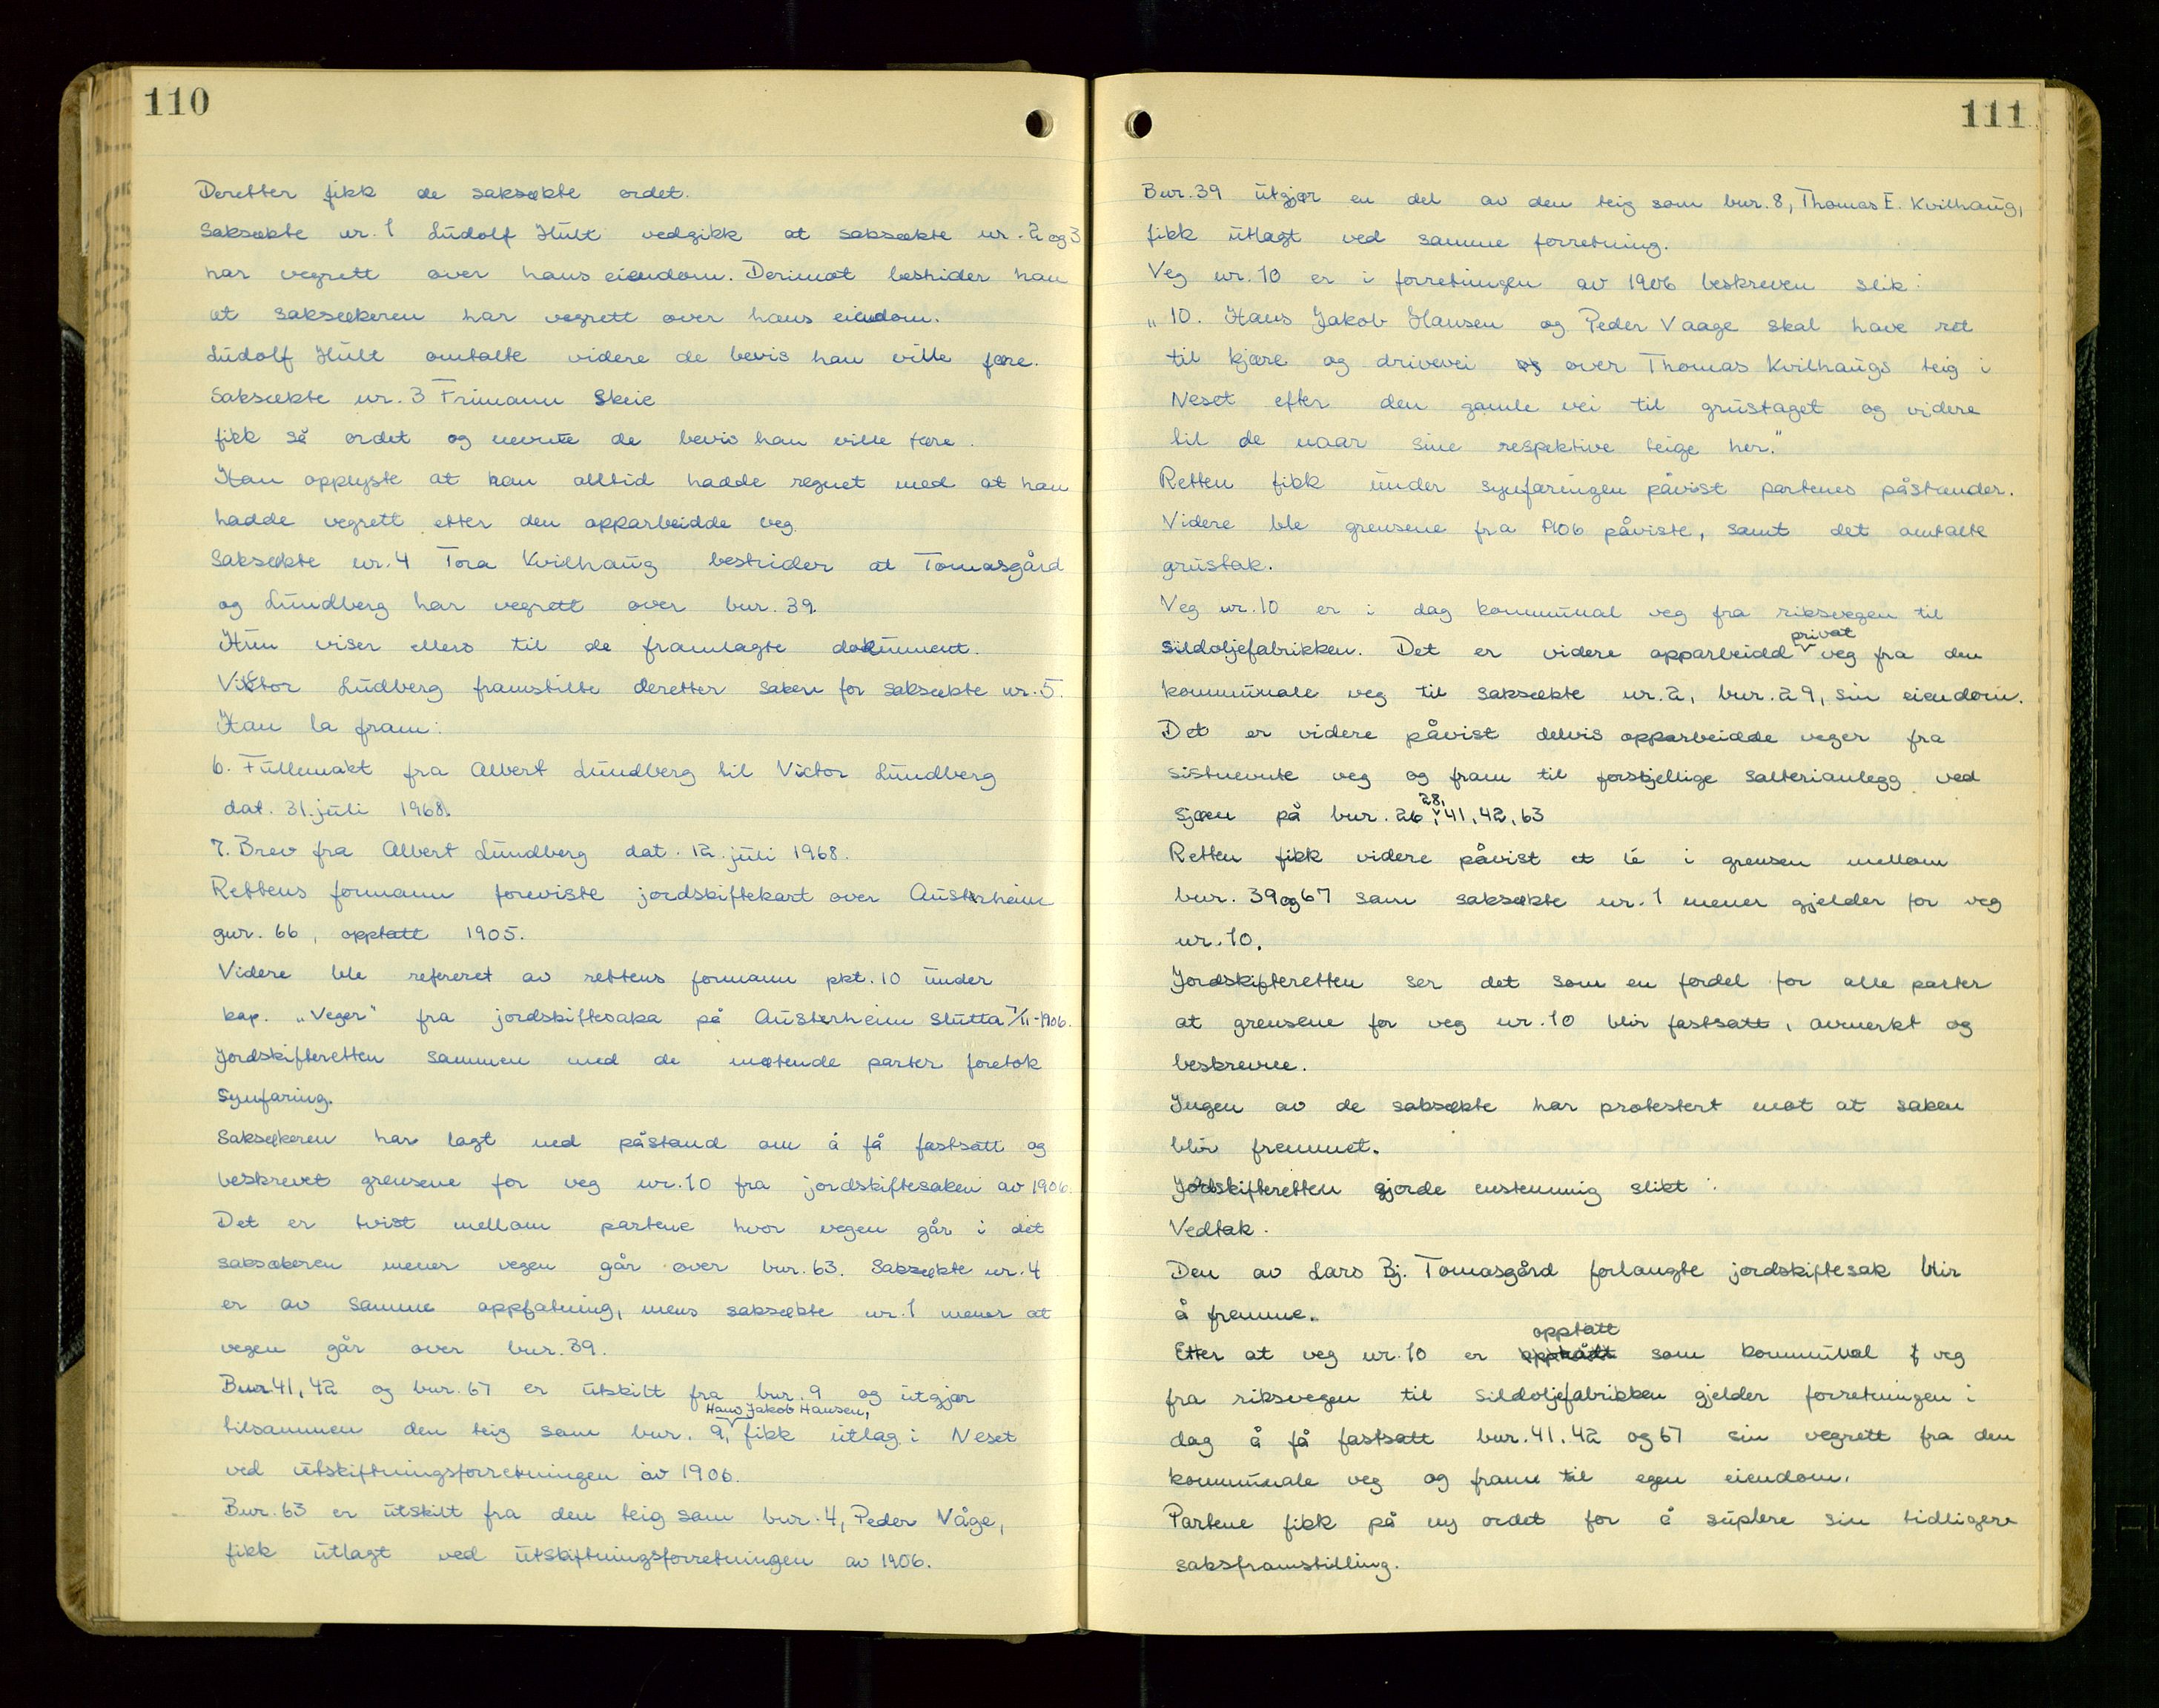 110
Deretter fikk de saksøkte ordet.
Saksøkte nr. 1 Ludolf Hult vedgikk at saksøkte nr. 2 og 3
har vegrett over hans eiendom. Derimot bestrider han
at saksøkeren har vegrett over hans eiendom.
Ludolf Hult omtalte videre de bevis han ville føre.
Saksøkte nr. 3 Frimann Skeie
fikk så ordet og nevnte de bevis han ville føre.
Han opplyste at han alltid hadde regnet med at han
hadde vegrett etter den opparbeidde veg.
Saksøkte nr. 4 Tora Kvilhaug bestrider at Tomasgård
og Lundberg har vegrett over bnr. 39.
Hun viser ellers til de framlagte dokument.
Victor Ludberg framstilte deretter saken for saksøkte nr. 5.
Han la fram:
6. Fullmakt fra Albert Lundberg til Victor Lundberg
dat. 31. juli 1968.
7. Brev fra Albert Lundberg dat. 12. juli 1968.
Rettens formann foreviste jordskiftekart over Austrheim
gnr. 66, opptatt 1905.
Videre ble referert av rettens formann pkt. 10 under
kap. „Veger" fra jordskiftesaka på Austrheim slutta 7/11-1906.
Jordskifteretten sammen med de møtende parter foretok
synfaring.
Saksøkeren har lagt ned påstand om å få fastsatt og
beskrevet grensene for veg nr. 10 fra jordskiftesaken av 1906.
Det er tvist mellom partene hvor vegen går i det
saksøkeren mener vegen går over bnr. 63. Saksøkte nr. 4
er av samme oppfatning, mens saksøkte nr. 1 mener at
vegen går over bnr. 39.
Bnr. 41, 42 og bnr. 67 er utskilt fra bnr. 9 og utgjør
Hans Jakob Hansen,
tilsammen den teig som bnr. 9, fikk utlag i Neset
ved utskiftningsforretningen av 1906.
Bnr. 63 er utskilt fra den teig som bnr. 4, Peder Våge,
fikk utlagt ved utskiftningsforretningen av 1906.
111
Bnr. 39 utgjør en del av den teig som bnr. 8, Thomas E. Kvilhaug,
fikk utlagt ved samme forretning.
Veg nr. 10 er i forretningen av 1906 beskreven slik:
„10. Hans Jakob Hansen og Peder Vaage skal have ret
til kjøre og drivevei og over Thomas Kvilhaugs teig i
Neset efter den gamle vei til grustaget og videre
til de naar sine respektive teige her."
Retten fikk under synfaringen påvist partenes påstander.
Videre ble grensene fra 1906 påviste, samt det omtalte
grustak.
Veg nr. 10 er i dag kommunal veg fra riksvegen til
privat
sildoljefabrikken. Det er videre opparbeidd veg fra den
kommunale veg til saksøkte nr. 2, bnr. 29, sin eiendom.
Det er videre påvist delvis opparbeidde veger fra
sistnevnte veg og fram til forskjellige salterianlegg ved
28,
sjøen på bnr. 26, 41, 42, 63
Retten fikk videre påvist et le i grensen mellom
bnr. 39 og 67 som saksøkte nr. 1 mener gjelder for veg
nr. 10.
Jordskifteretten ser det som en fordel for alle parter
at grensene for veg nr. 10 blir fastsatt, avmerkt og
beskrevne.
Ingen av de saksøkte har protestert mot at saken
blir fremmet.
Jordskifteretten gjorde enstemmig slikt:
Vedtak.
Den av Lars Bj. Tomasgård forlangte jordskiftesak blir
å fremme.
opptatt
Etter at veg nr. 10 er som kommunal f veg
fra riksvegen til sildoljefabrikken gjelder forretningen i
dag å få fastsatt bnr. 41. 42 og 67 sin vegrett fra den
kommunale veg og fram til egen eiendom.
Partene fikk på ny ordet for å suplere sin tidligere
saksframstilling.